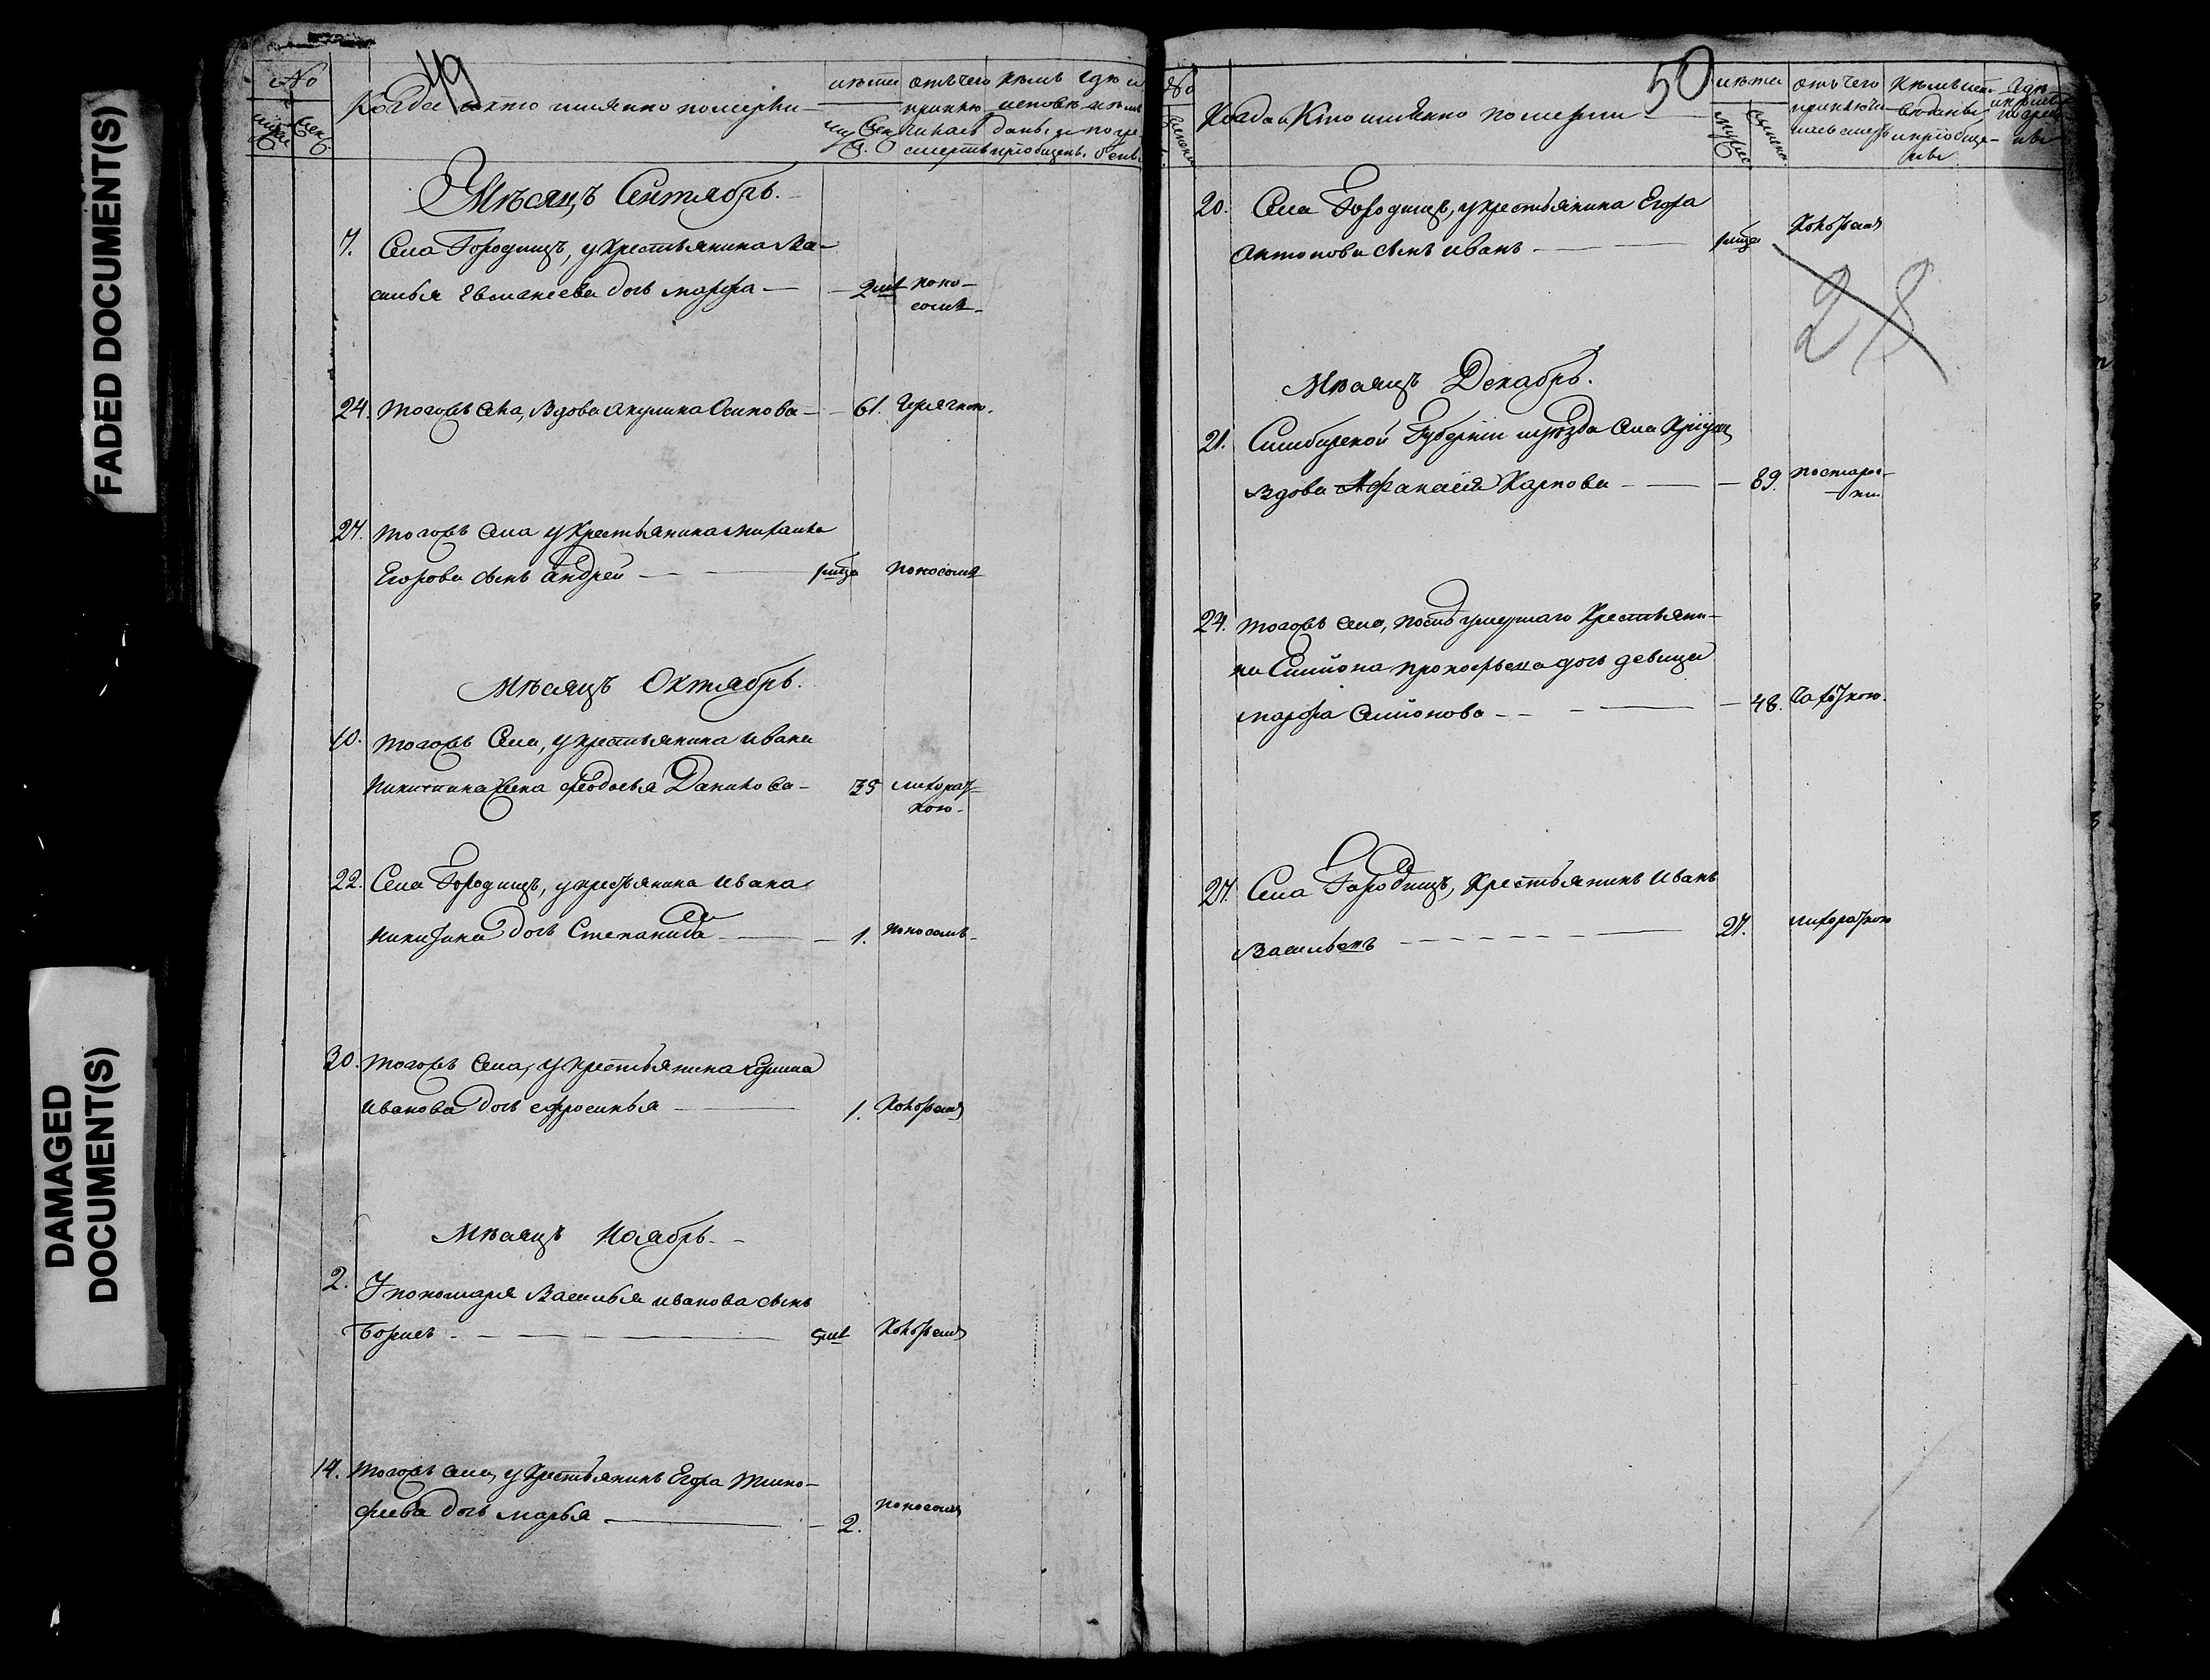 FADED DOCUMENT(S)
DAMAGED
DOCUMENT(S)
49
№
Когда и кто имянно померли
лѣта
отъ чего
приклю
чилась
смерть
кѣмъ
исповѣ
даны и
пріобщены
гдѣ и
погре
бены
Мѣсяцъ Сентябрь.
7. Села Городищъ, у крестьянина Ва-
силья дочь марфа —
2 поно-
сомъ
24. тогожъ села, вдова акулина Осипова —
61. Горячкою.
27. тогожъ села у крестьянина михаила
Егорова сынъ андрей —
поносомъ
Мѣсяцъ Октябрь.
10. тогожъ Села, у крестьянина ивана
никитина жена феодосья Данилова —
35 лихорад-
кою.
22. Села Городищъ, у крестьянина ивана
никитина дочь Степанида —
1. поносомъ
30. тогожъ Села, у крестьянина
иванова дочь ефросинья —
1.
Мѣсяцъ Ноябрь.
2. У пономаря Василья иванова сынъ
Борисъ —
14. тогожъ села, у крестьянинъ Егора тимо-
феева дочь марья —
2. поносомъ
50
№
Когда и Кто имянно померли
лѣта
отъ чего
приключи
лась смерть
кѣмъ испо-
вѣданы
и пріобще-
ны
гдѣ
и
погребе
ны
20. Села Городищъ, у крестьянина Егора
антонова сынъ иванъ —
28
Мѣсяцъ Декабрь.
21. Симбирской Губерніи и уѣзда Села
вдова Афанасія Карпова —
89. по старос-
ти
24. тогожъ села, послѣ умершаго Крестьяни-
на Симіона прокофьева дочь девица
марфа Симіонова —
48. чахоткою.
27. Села Городищъ, Крестьянинъ иванъ
Васильевъ —
27. лихорадкою